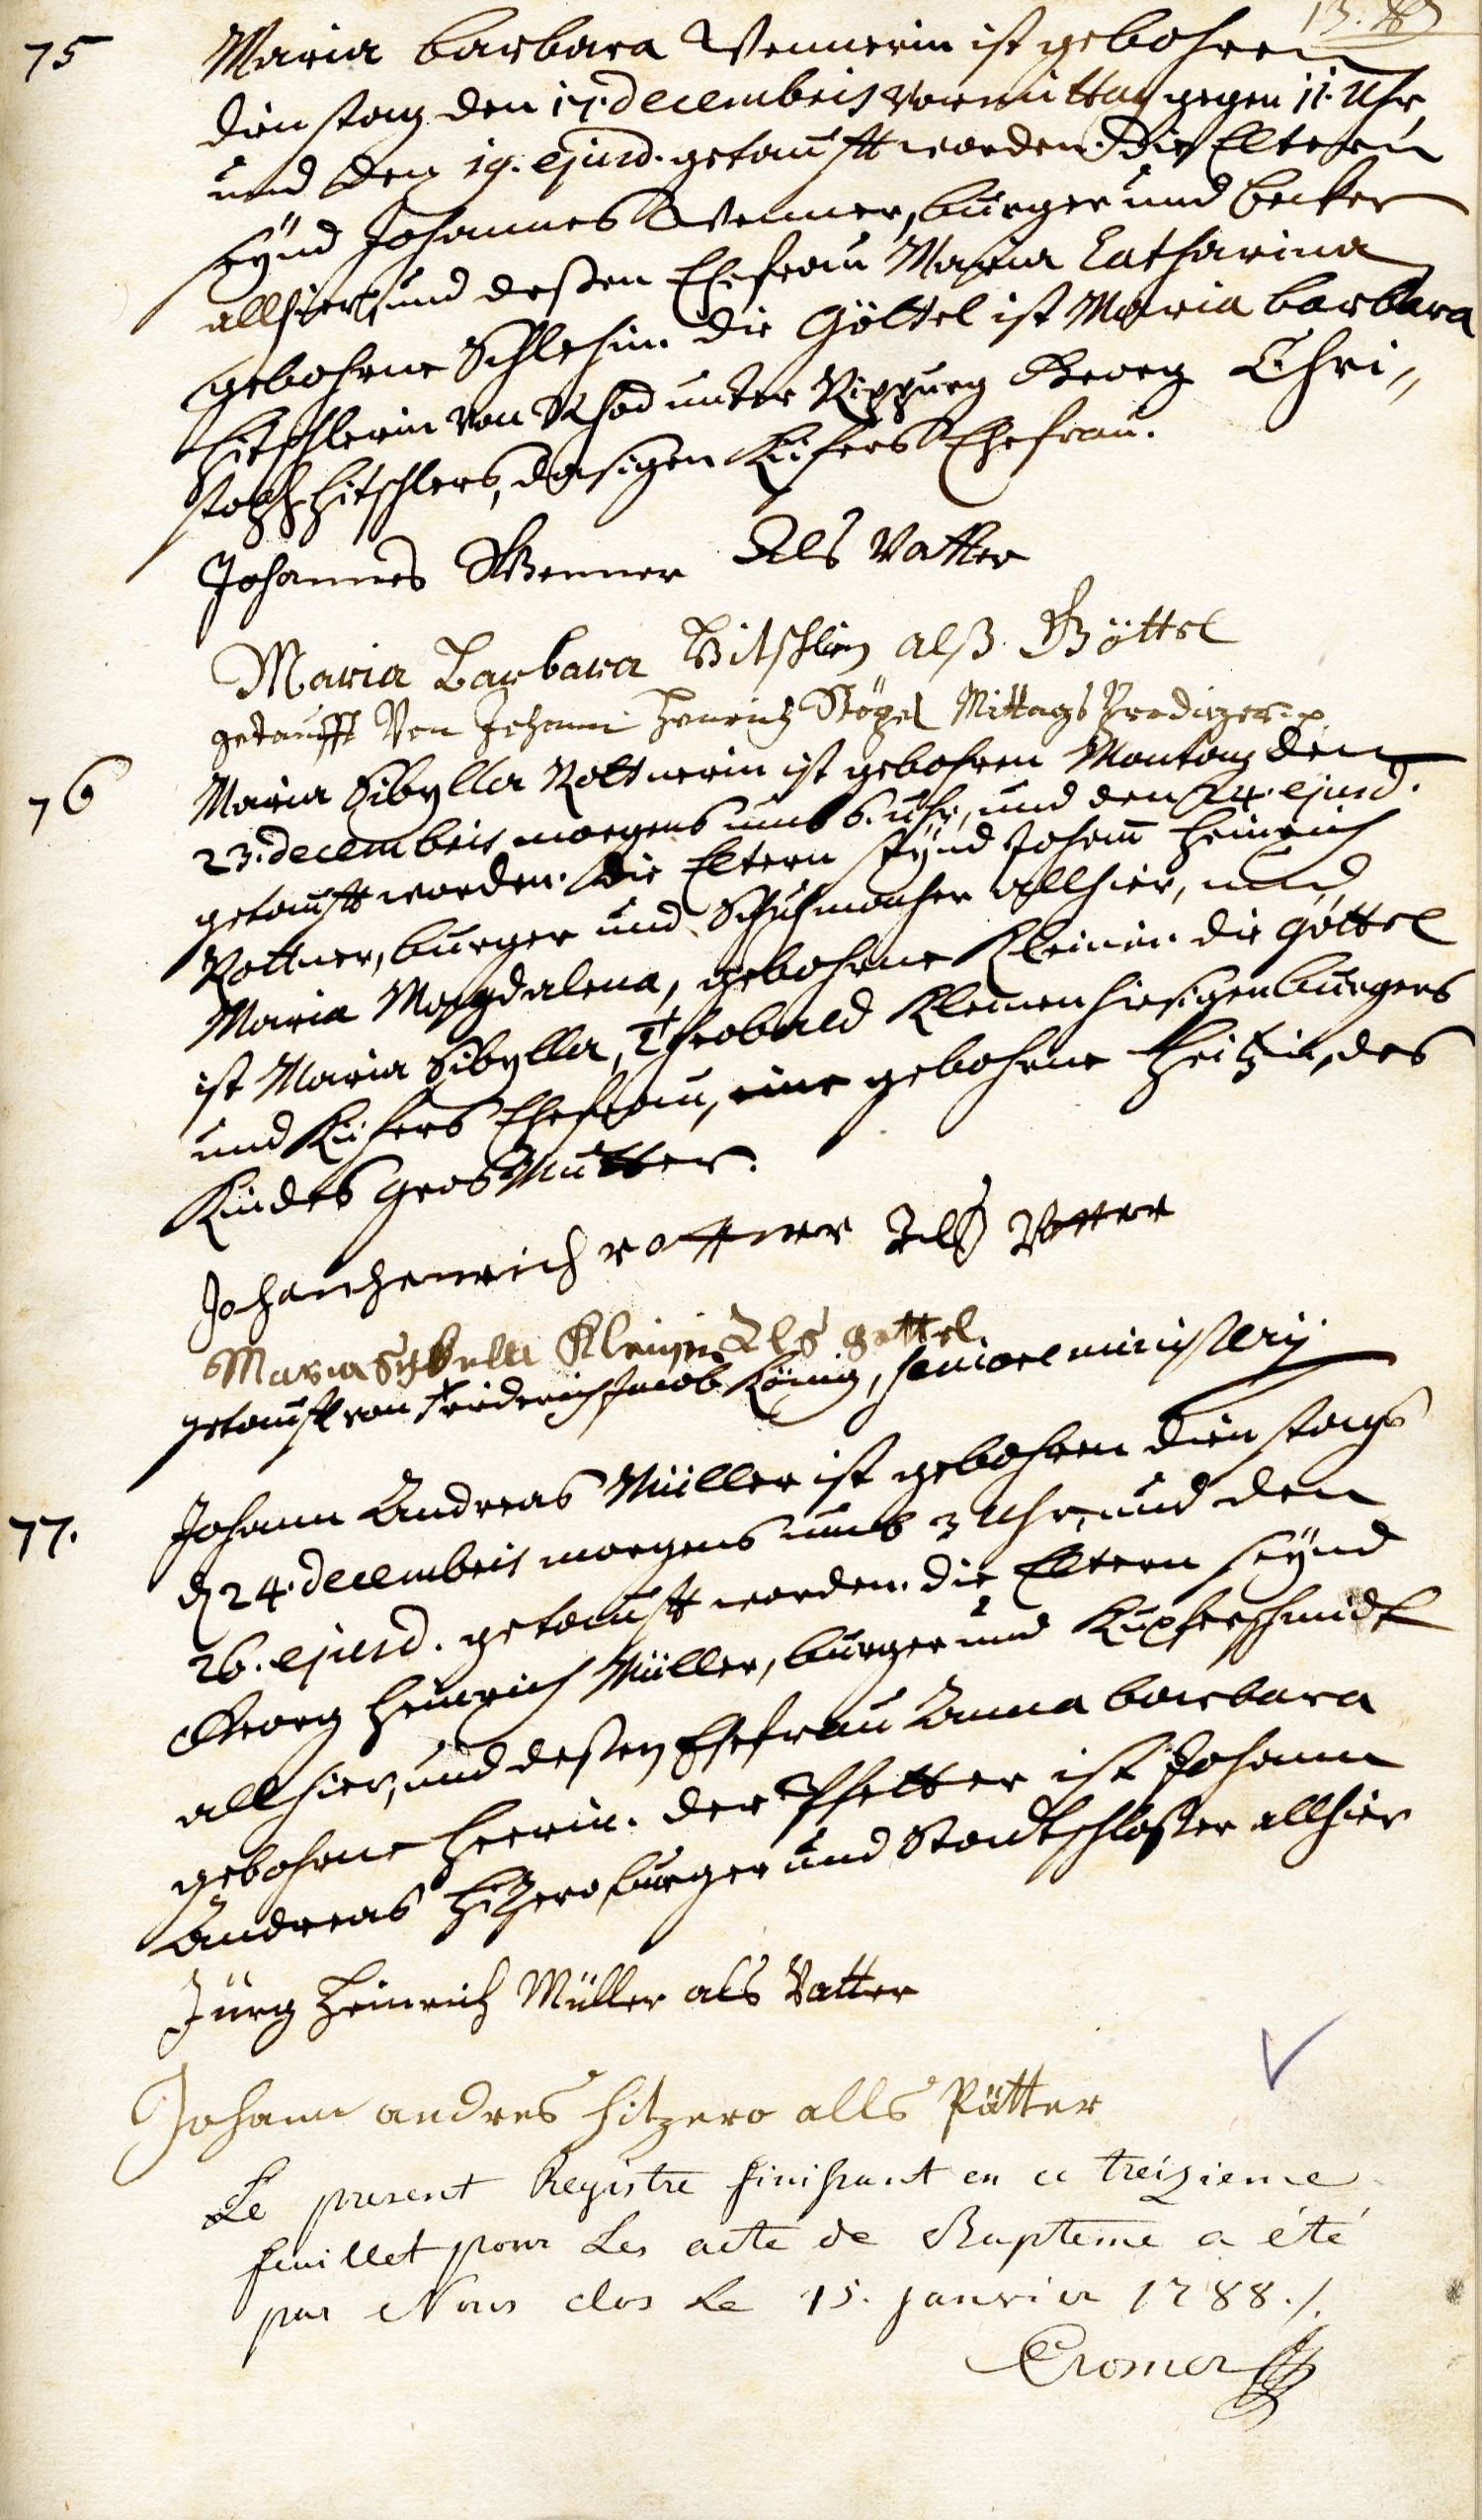 13.
75 Maria Barbara Wennerin ist gebohren
Dienstag den 17. decembris vormittag gegen 11. Uhr
und den 19. ejusd. getaufft worden. Die Eltern
seynd Johannes Wenner, burger und becker
allhier, und deßen Ehefrau Maria Catharina
gebohrne. die Göttel ist Maria barbara
Hitschlerin von Rhod unter Rippurg Georg Chri„
stoph Hitschlers, dasigen Küfers Ehefrau.
Johannes Wenner Als Vatter
Maria Barbara Hitschlerin alß Göttel
getaufft Von Johann Henrich Mittags Prediger.
76 Maria Sibylla Rottnerin ist gebohren Montag den
23. decembris morgens umb 6. uhr, und den 24. ejusd.
getaufft worden. Die Eltern seynd Johann Heinrich
Rottner, burger und Schuhmacher allhier, und
Maria Magdalena, gebohrne Kleinin. die Göttel
ist Maria Sibylla, Theobald Kleinen hiesigen burgers
und Küfers Ehefrau, eine gebohrne, des
Kindes GrosMutter.
Johanhenrich rottner Als Vatter
Maria Sybella Kleinin Als Gottel.
getaufft von Friderich Jacob König, seniore ministerij
77. Johann Andreas Müller ist gebohren Dienstags
d. 24. decembris morgens umb 3 Uhr, und den
26. ejusd. getaufft worden. die Eltern seynd
Georg Heinrich Müller, burger und Kupferschmidt
allhier, und deßen Ehefrau Anna barbara
gebohrne Heerin. der Pfetter ist Johann
Andreas Hitzero, burger und Stadtschloßer allhier
Jürg Heinrich Müller als Vatter
Johann andres hitzero alls Pätter
Le present Registre finissant en ce treizieme
feuillet pour Les acte de Bapteme a été
par Nous clos Le 15. janvier 1788./.
Cromer